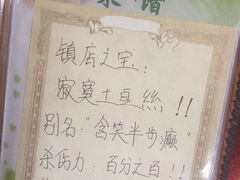 镇店之宝:
寂寞土豆絲!!
别名:"含笑半步癫"
杀伤力:百分之百!!